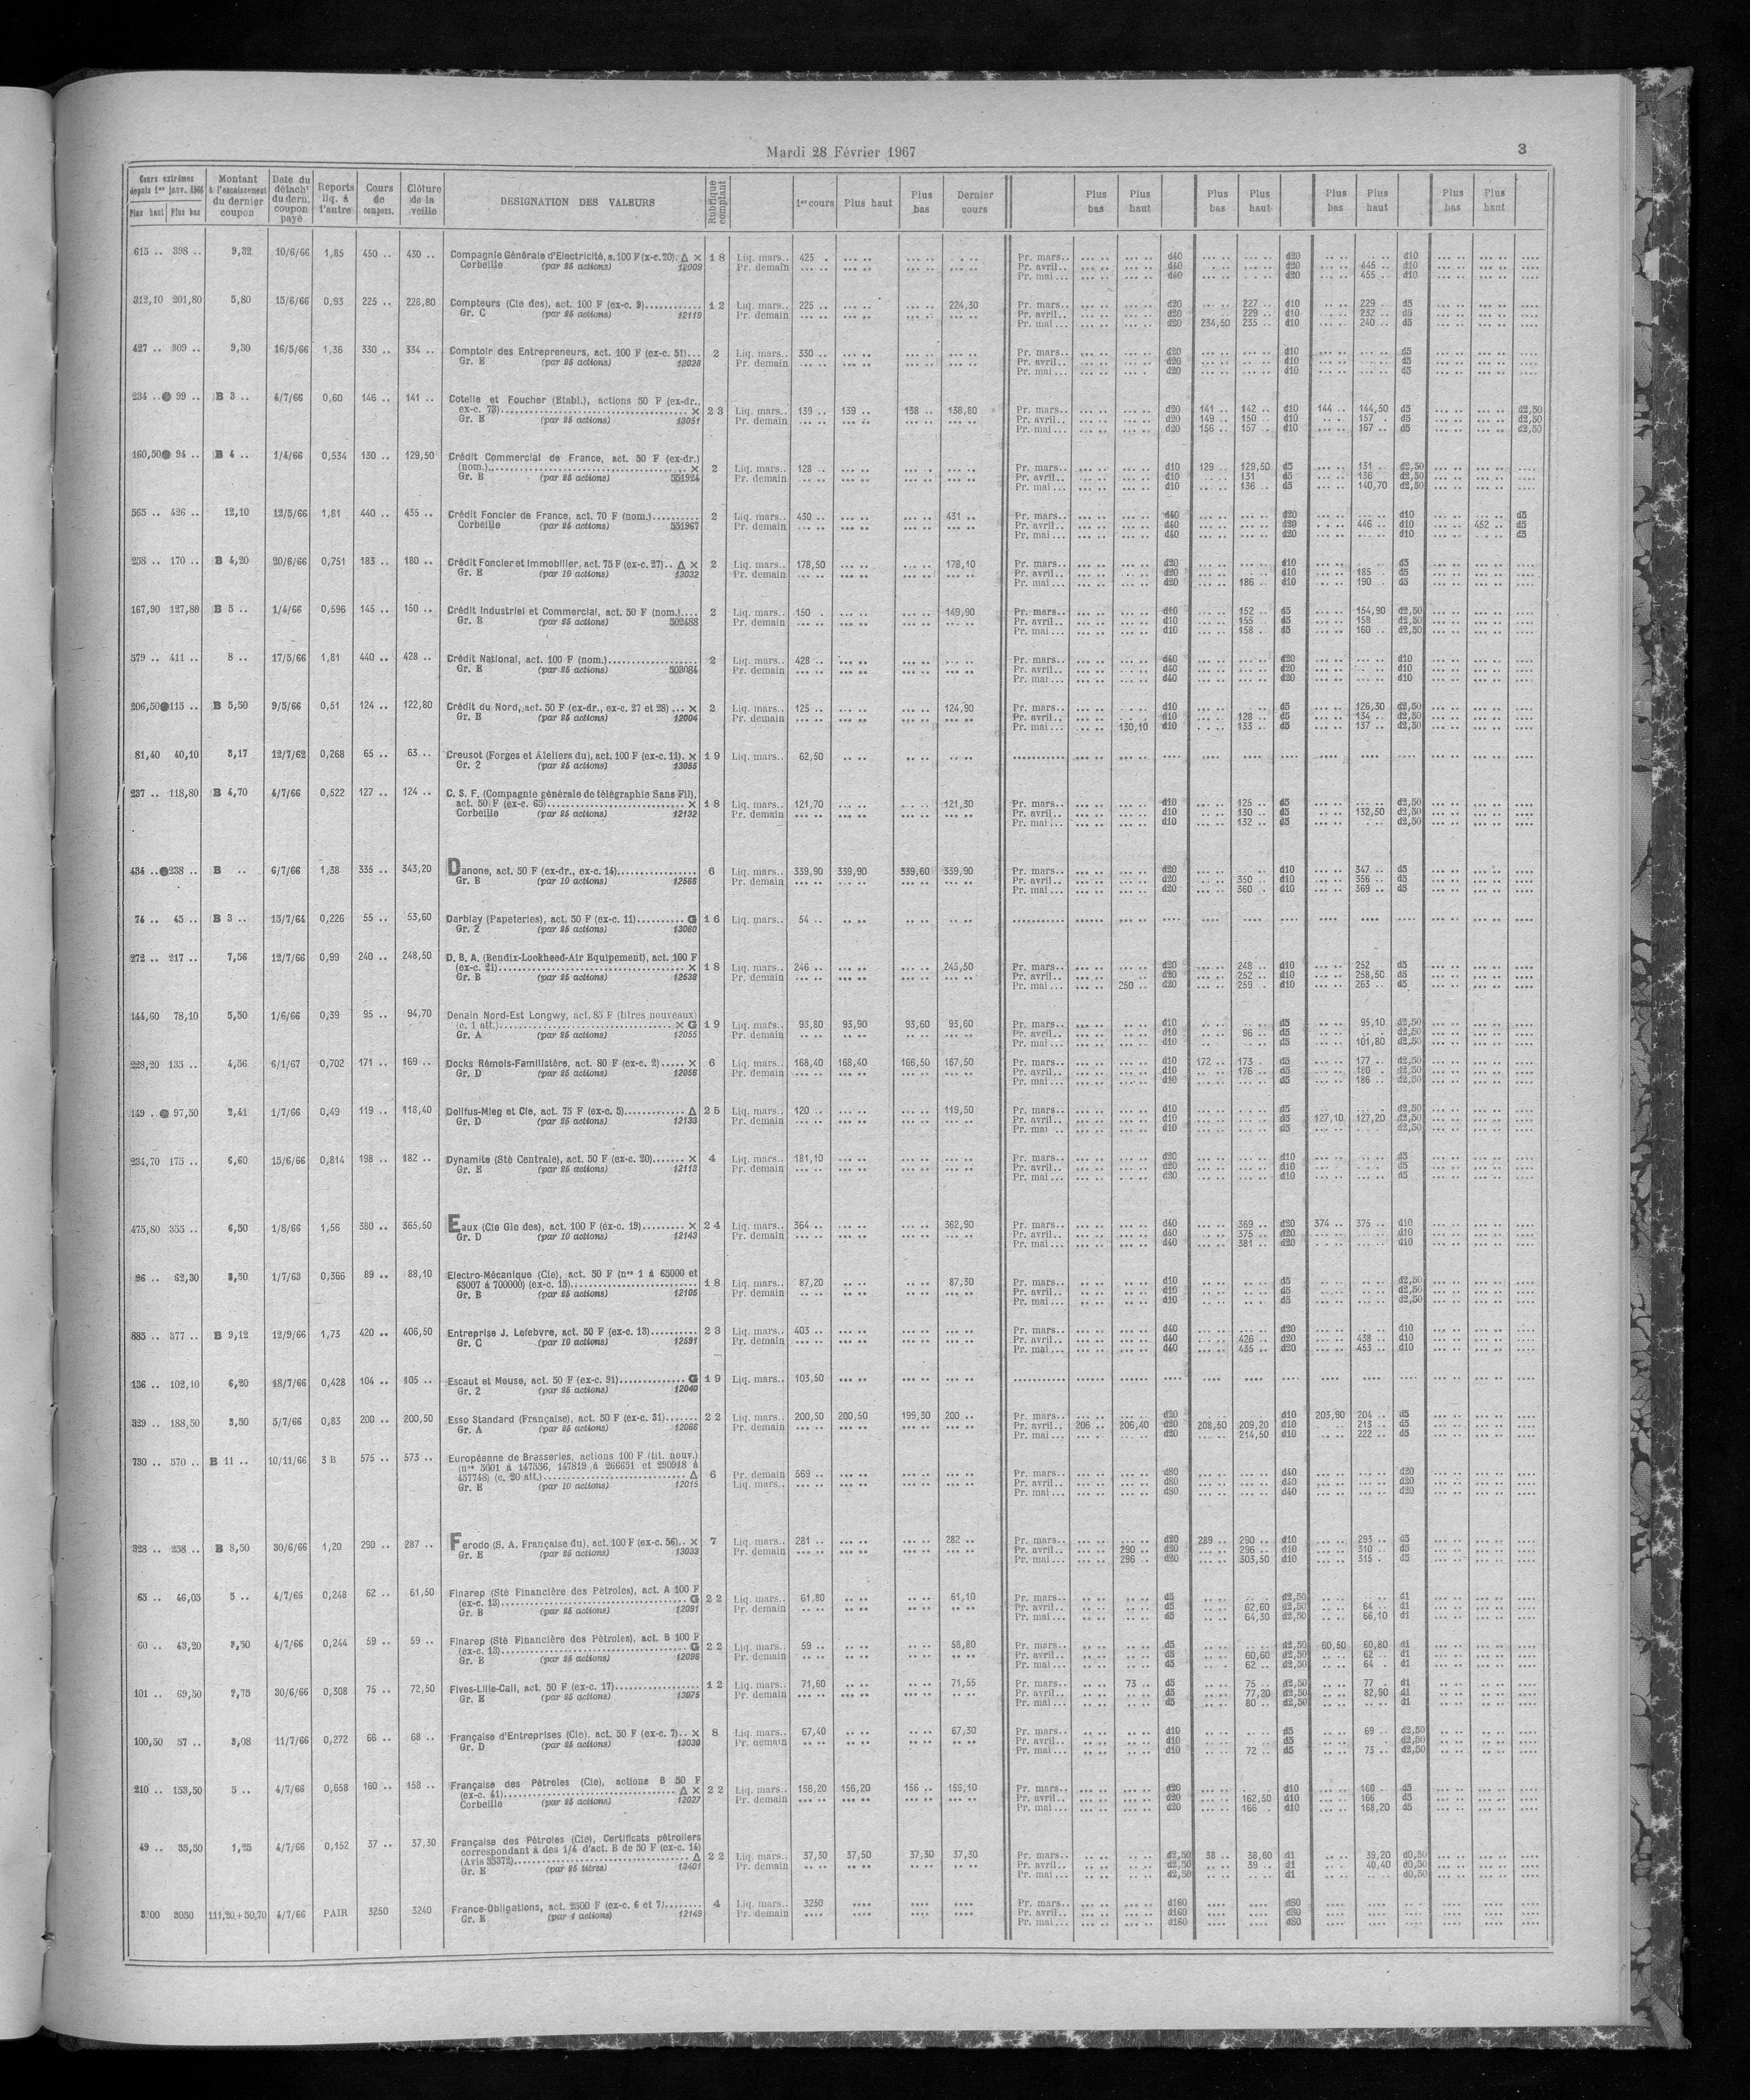 Mardi 28 Février 1967
3
Cours extrêmes depuis 1er janv. 1966 Plus haut Plus bas | Montant à l'encaissement du dernier coupon | Date du détacht du dern. coupon payé | Reports liq. à l'autre | Cours de compens. | Clôture de la veille | DESIGNATION DES VALEURS | Rubrique comptant | 1er cours | Plus haut | Plus bas | Dernier cours | Plus bas | Plus haut | Plus bas | Plus haut | Plus bas | Plus haut | Plus bas | Plus haut
615 .. 398 .. 9,32 10/6/66 1,85 450 .. 430 .. Compagnie Générale d'Electricité, a. 100 F (x-c. 20). Δ × 18 Liq. mars.. 425 . Pr. mars.. d40 d20 d10
Corbeille (par 25 actions) 12009 Pr. demain Pr. avril.. d40 d20 445 .. d10
Pr. mai... d40 d20 455 .. d10
312,10 201,80 5,80 15/6/66 0,93 225 .. 226,80 Compteurs (Cie des), act. 100 F (ex-c. 9) 12 Liq. mars.. 225 .. 224,30 Pr. mars.. d20 227 .. d10 229 . d5
Gr. C (par 25 actions) 12119 Pr. demain Pr. avril.. d20 229 .. d10 232 .. d5
Pr. mai... d20 234,50 235 .. d10 240 .. d5
427 .. 309 .. 9,30 16/5/66 1,36 330 .. 334 .. Comptoir des Entrepreneurs, act. 100 F (ex-c. 51)... 2 Liq. mars.. 330 .. Pr. mars.. d20 d10 d5
Gr. E (par 25 actions) 12028 Pr. demain Pr. avril.. d20 d10 d5
Pr. mai... d20 d10 d5
234 .. ● 99 .. B 3 .. 4/7/66 0,60 146 .. 141 .. Cotelle et Foucher (Etabl.), actions 50 F (ex-dr.,
ex-c. 73) × 23 Liq. mars.. 139 .. 139 .. 138 .. 138,80 Pr. mars.. d20 141 .. 142 .. d10 144 .. 144,50 d5 d2,50
Gr. E (par 25 actions) 13051 Pr. demain Pr. avril.. d20 149 .. 150 .. d10 157 . d5 d2,50
Pr. mai... d20 156 .. 157 .. d10 167 .. d5 d2,50
160,50 ● 94 .. B 4 .. 1/4/66 0,534 130 .. 129,50 Crédit Commercial de France, act. 50 F (ex-dr.)
(nom.) × 2 Liq. mars.. 128 .. Pr. mars.. d10 129 .. 129,50 d5 131 . d2,50
Gr. B (par 25 actions) 551924 Pr. demain Pr. avril.. d10 131 . d5 136 . d2,50
Pr. mai... d10 136 .. d5 140,70 d2,50
565 .. 426 .. 12,10 12/5/66 1,81 440 .. 435 .. Crédit Foncier de France, act. 70 F (nom.) 2 Liq. mars.. 430 .. 431 .. Pr. mars.. d40 d20 d10 d5
Corbeille (par 25 actions) 551967 Pr. demain Pr. avril.. d40 d20 446 .. d10 452 .. d5
Pr. mai... d40 d20 d10 d5
258 .. 170 .. B 4,20 20/6/66 0,751 183 .. 180 .. Crédit Foncier et Immobilier, act. 75 F (ex-c. 27).. Δ × 2 Liq. mars.. 178,50 178,10 Pr. mars.. d20 d10 d5
Gr. E (par 10 actions) 13032 Pr. demain Pr. avril.. d20 d10 185 . d5
Pr. mai... d20 186 .. d10 190 . d5
167,90 127,80 B 5 .. 1/4/66 0,596 145 .. 150 .. Crédit Industriel et Commercial, act. 50 F (nom.).... 2 Liq. mars.. 150 . 149,90 Pr. mars.. d10 152 .. d5 154,90 d2,50
Gr. B (par 25 actions) 502488 Pr. demain Pr. avril.. d10 155 .. d5 158 d2,50
Pr. mai... d10 158 . d5 160 .. d2,50
579 .. 411 .. 8 .. 17/5/66 1,81 440 .. 428 .. Crédit National, act. 100 F (nom.) 2 Liq. mars.. 428 .. Pr. mars.. d40 d20 d10
Gr. E (par 25 actions) 503084 Pr. demain Pr. avril.. d40 d20 d10
Pr. mai... d40 d20 d10
206,50 ● 115 .. B 5,50 9/5/66 0,51 124 .. 122,80 Crédit du Nord, act. 50 F (ex-dr., ex-c. 27 et 28) ... × 2 Liq. mars.. 125 .. 124,90 Pr. mars.. d10 d5 126,30 d2,50
Gr. E (par 25 actions) 12004 Pr. demain Pr. avril.. d10 128 .. d5 134 .. d2,50
Pr. mai... 130,10 d10 133 .. d5 137 .. d2,50
81,40 40,10 3,17 12/7/62 0,268 65 .. 63 .. Creusot (Forges et Ateliers du), act. 100 F (ex-c. 11). × 19 Liq. mars.. 62,50
Gr. 2 (par 25 actions) 13055
237 .. 118,80 B 4,70 4/7/66 0,522 127 .. 124 .. C. S. F. (Compagnie générale de télégraphie Sans Fil),
act. 50 F (ex-c. 65) × 18 Liq. mars.. 121,70 121,30 Pr. mars.. d10 125 .. d5 d2,50
Corbeille (par 25 actions) 12132 Pr. demain Pr. avril.. d10 130 .. d5 132,50 d2,50
Pr. mai... d10 132 .. d5 d2,50
434 .. ● 238 .. B .. 6/7/66 1,38 335 .. 343,20 Danone, act. 50 F (ex-dr., ex-c. 14) 6 Liq. mars.. 339,90 339,90 339,60 339,90 Pr. mars.. d20 d10 347 .. d5
Gr. B (par 10 actions) 12566 Pr. demain Pr. avril.. d20 350 .. d10 356 .. d5
Pr. mai... d20 360 .. d10 369 .. d5
74 .. 45 .. B 3 .. 15/7/64 0,226 55 .. 53,60 Darblay (Papeteries), act. 50 F (ex-c. 11) G 16 Liq. mars.. 54 ..
Gr. 2 (par 25 actions) 13060
272 .. 217 .. 7,56 12/7/66 0,99 240 .. 248,50 D. B. A. (Bendix-Lockheed-Air Equipement), act. 100 F
(ex-c. 21) × 18 Liq. mars.. 246 .. 245,50 Pr. mars.. d20 248 .. d10 252 d5
Gr. B (par 25 actions) 12538 Pr. demain Pr. avril.. d20 252 .. d10 258,50 d5
Pr. mai... 250 .. d20 259 . d10 263 .. d5
144,60 78,10 5,50 1/6/66 0,39 95 .. 94,70 Denain Nord-Est Longwy, act. 85 F (titres nouveaux)
(c. 1 att.) × G 19 Liq. mars.. 93,80 93,90 93,60 93,60 Pr. mars.. d10 d5 95,10 d2,50
Gr. A (par 25 actions) 12055 Pr. demain Pr. avril.. d10 96 .. d5 d2,50
Pr. mai... d10 d5 101,80 d2,50
228,20 135 .. 4,56 6/1/67 0,702 171 .. 169 .. Docks Rémois-Familistère, act. 80 F (ex-c. 2)..... × 6 Liq. mars.. 168,40 168,40 166,50 167,50 Pr. mars.. d10 172 .. 173 . d5 177 .. d2,50
Gr. D (par 25 actions) 12056 Pr. demain Pr. avril.. d10 176 .. d5 180 . d2,50
Pr. mai... d10 d5 186 .. d2,50
149 .. ● 97,50 2,41 1/7/66 0,49 119 .. 118,40 Dollfus-Mieg et Cie, act. 75 F (ex-c. 5) Δ 25 Liq. mars.. 120 .. 119,50 Pr. mars.. d10 d5 d2,50
Gr. D (par 25 actions) 12133 Pr. demain Pr. avril.. d10 d5 127,10 127,20 d2,50
Pr. mai .. d10 d5 d2,50
234,70 175 .. 6,60 15/6/66 0,814 198 .. 182 .. Dynamite (Sté Centrale), act. 50 F (ex-c. 20) × 4 Liq. mars.. 181,10 Pr. mars.. d20 d10 d5
Gr. E (par 25 actions) 12113 Pr. demain Pr. avril.. d20 d10 d5
Pr. mai... d20 d10 d5
475,80 355 .. 6,50 1/8/66 1,56 380 .. 365,50 Eaux (Cie Gle des), act. 100 F (ex-c. 19) × 24 Liq. mars.. 364 .. 362,90 Pr. mars.. d40 369 .. d20 374 .. 375 .. d10
Gr. D (par 10 actions) 12143 Pr. demain Pr. avril.. d40 375 .. d20 d10
Pr. mai... d40 381 .. d20 d10
96 .. 62,30 3,50 1/7/63 0,366 89 .. 88,10 Electro-Mécanique (Cie), act. 50 F (nos 1 à 65000 et
65007 à 700000) (ex-c. 15) 18 Liq. mars.. 87,20 87,30 Pr. mars.. d10 d5 d2,50
Gr. B (par 25 actions) 12105 Pr. demain Pr. avril.. d10 d5 d2,50
Pr. mai... d10 d5 d2,50
885 .. 377 .. B 9,12 12/9/66 1,73 420 .. 406,50 Entreprise J. Lefebvre, act. 50 F (ex-c. 13) 23 Liq. mars.. 403 .. Pr. mars.. d40 d20 d10
Gr. C (par 10 actions) 12591 Pr. demain Pr. avril.. d40 426 .. d20 438 .. d10
Pr. mai... d40 435 .. d20 453 .. d10
136 .. 102,10 6,20 18/7/66 0,428 104 .. 105 .. Escaut et Meuse, act. 50 F (ex-c. 91) G 19 Liq. mars.. 103,50
Gr. 2 (par 25 actions) 12040
329 .. 188,50 3,50 5/7/66 0,83 200 .. 200,50 Esso Standard (Française), act. 50 F (ex-c. 31) 22 Liq. mars.. 200,50 200,50 199,30 200 .. Pr. mars.. d20 d10 203,90 204 .. d5
Gr. A (par 25 actions) 12066 Pr. demain Pr. avril.. 206 .. 206,40 d20 208,50 209,20 d10 213 .. d5
Pr. mai... d20 214,50 d10 222 .. d5
730 .. 570 .. B 11 .. 10/11/66 3 B 575 .. 573 .. Européenne de Brasseries, actions 100 F (tit. nouv.)
(nos 5001 à 147556, 147819 à 266651 et 290918 à
457748) (c. 20 att.) Δ 6 Pr. demain 569 .. Pr. mars.. d80 d40 d20
Gr. E (par 10 actions) 12015 Liq. mars.. Pr. avril.. d80 d40 d20
Pr. mai... d80 d40 d20
328 .. 258 .. B 8,50 30/6/66 1,20 290 .. 287 .. Ferodo (S. A. Française du), act. 100 F (ex-c. 56).. × 7 Liq. mars.. 281 .. 282 .. Pr. mars.. d20 289 .. 290 .. d10 293 .. d5
Gr. E (par 25 actions) 13033 Pr. demain Pr. avril.. 290 .. d20 296 .. d10 310 .. d5
Pr. mai... 296 .. d20 303,50 d10 315 . d5
65 .. 46,05 5 .. 4/7/66 0,248 62 .. 61,50 Finarep (Sté Financière des Pétroles), act. A 100 F
(ex-c. 13) G 22 Liq. mars.. 61,80 61,10 Pr. mars.. d5 d2,50 d1
Gr. B (par 25 actions) 12091 Pr. demain Pr. avril.. d5 62,60 d2,50 64 .. d1
Pr. mai... d5 64,30 d2,50 66,10 d1
60 .. 43,20 2,50 4/7/66 0,244 59 .. 59 .. Finarep (Sté Financière des Pétroles), act. B 100 F
(ex-c. 13) G 22 Liq. mars.. 59 .. 58,80 Pr. mars.. d5 d2,50 60,50 60,80 d1
Gr. B (par 25 actions) 12098 Pr. demain Pr. avril.. d5 60,60 d2,50 62 .. d1
Pr. mai... d5 62 .. d2,50 64 . d1
101 .. 69,50 2,75 30/6/66 0,308 75 .. 72,50 Fives-Lille-Cail, act. 50 F (ex-c. 17) 12 Liq. mars.. 71,60 71,55 Pr. mars.. 73 .. d5 75 .. d2,50 77 .. d1
Gr. E (par 25 actions) 13075 Pr. demain Pr. avril.. d5 77,20 d2,50 82,90 d1
Pr. mai... d5 80 .. d2,50 d1
100,50 57 .. 3,08 11/7/66 0,272 66 .. 68 .. Française d'Entreprises (Cie), act. 50 F (ex-c. 7).. × 8 Liq. mars.. 67,40 67,30 Pr. mars.. d10 d5 69 .. d2,50
Gr. D (par 25 actions) 13030 Pr. demain Pr. avril.. d10 d5 d2,50
Pr. mai... d10 72 .. d5 73 .. d2,50
210 .. 153,50 5 .. 4/7/66 0,658 160 .. 158 .. Française des Pétroles (Cie), actions B 50 F
(ex-c. 41) Δ × 22 Liq. mars.. 156,20 156,20 156 .. 156,10 Pr. mars.. d20 d10 160 .. d5
Corbeille (par 25 actions) 12027 Pr. demain Pr. avril.. d20 162,50 d10 166 d5
Pr. mai... d20 166 .. d10 168,20 d5
49 .. 35,50 1,25 4/7/66 0,152 37 .. 37,30 Française des Pétroles (Cie), Certificats pétroliers
correspondant à des 1/4 d'act. B de 50 F (ex-c. 14)
(Avis 35372) Δ 22 Liq. mars.. 37,30 37,50 37,30 37,30 Pr. mars.. d2,50 38 .. 38,60 d1 39,20 d0,50
Gr. E (par 25 titres) 13401 Pr. demain Pr. avril.. d2,50 39 .. d1 40,40 d0,50
Pr. mai... d2,50 d1 d0,50
3050 111,20+50,70 4/7/66 PAIR 3250 3240 France-Obligations, act. 2500 F (ex-c. 6 et 7) 4 Liq. mars.. 3250 Pr. mars.. d160 d80
Gr. E (par 1 actions) 12149 Pr. demain Pr. avril.. d160 d80
Pr. mai... d160 d80